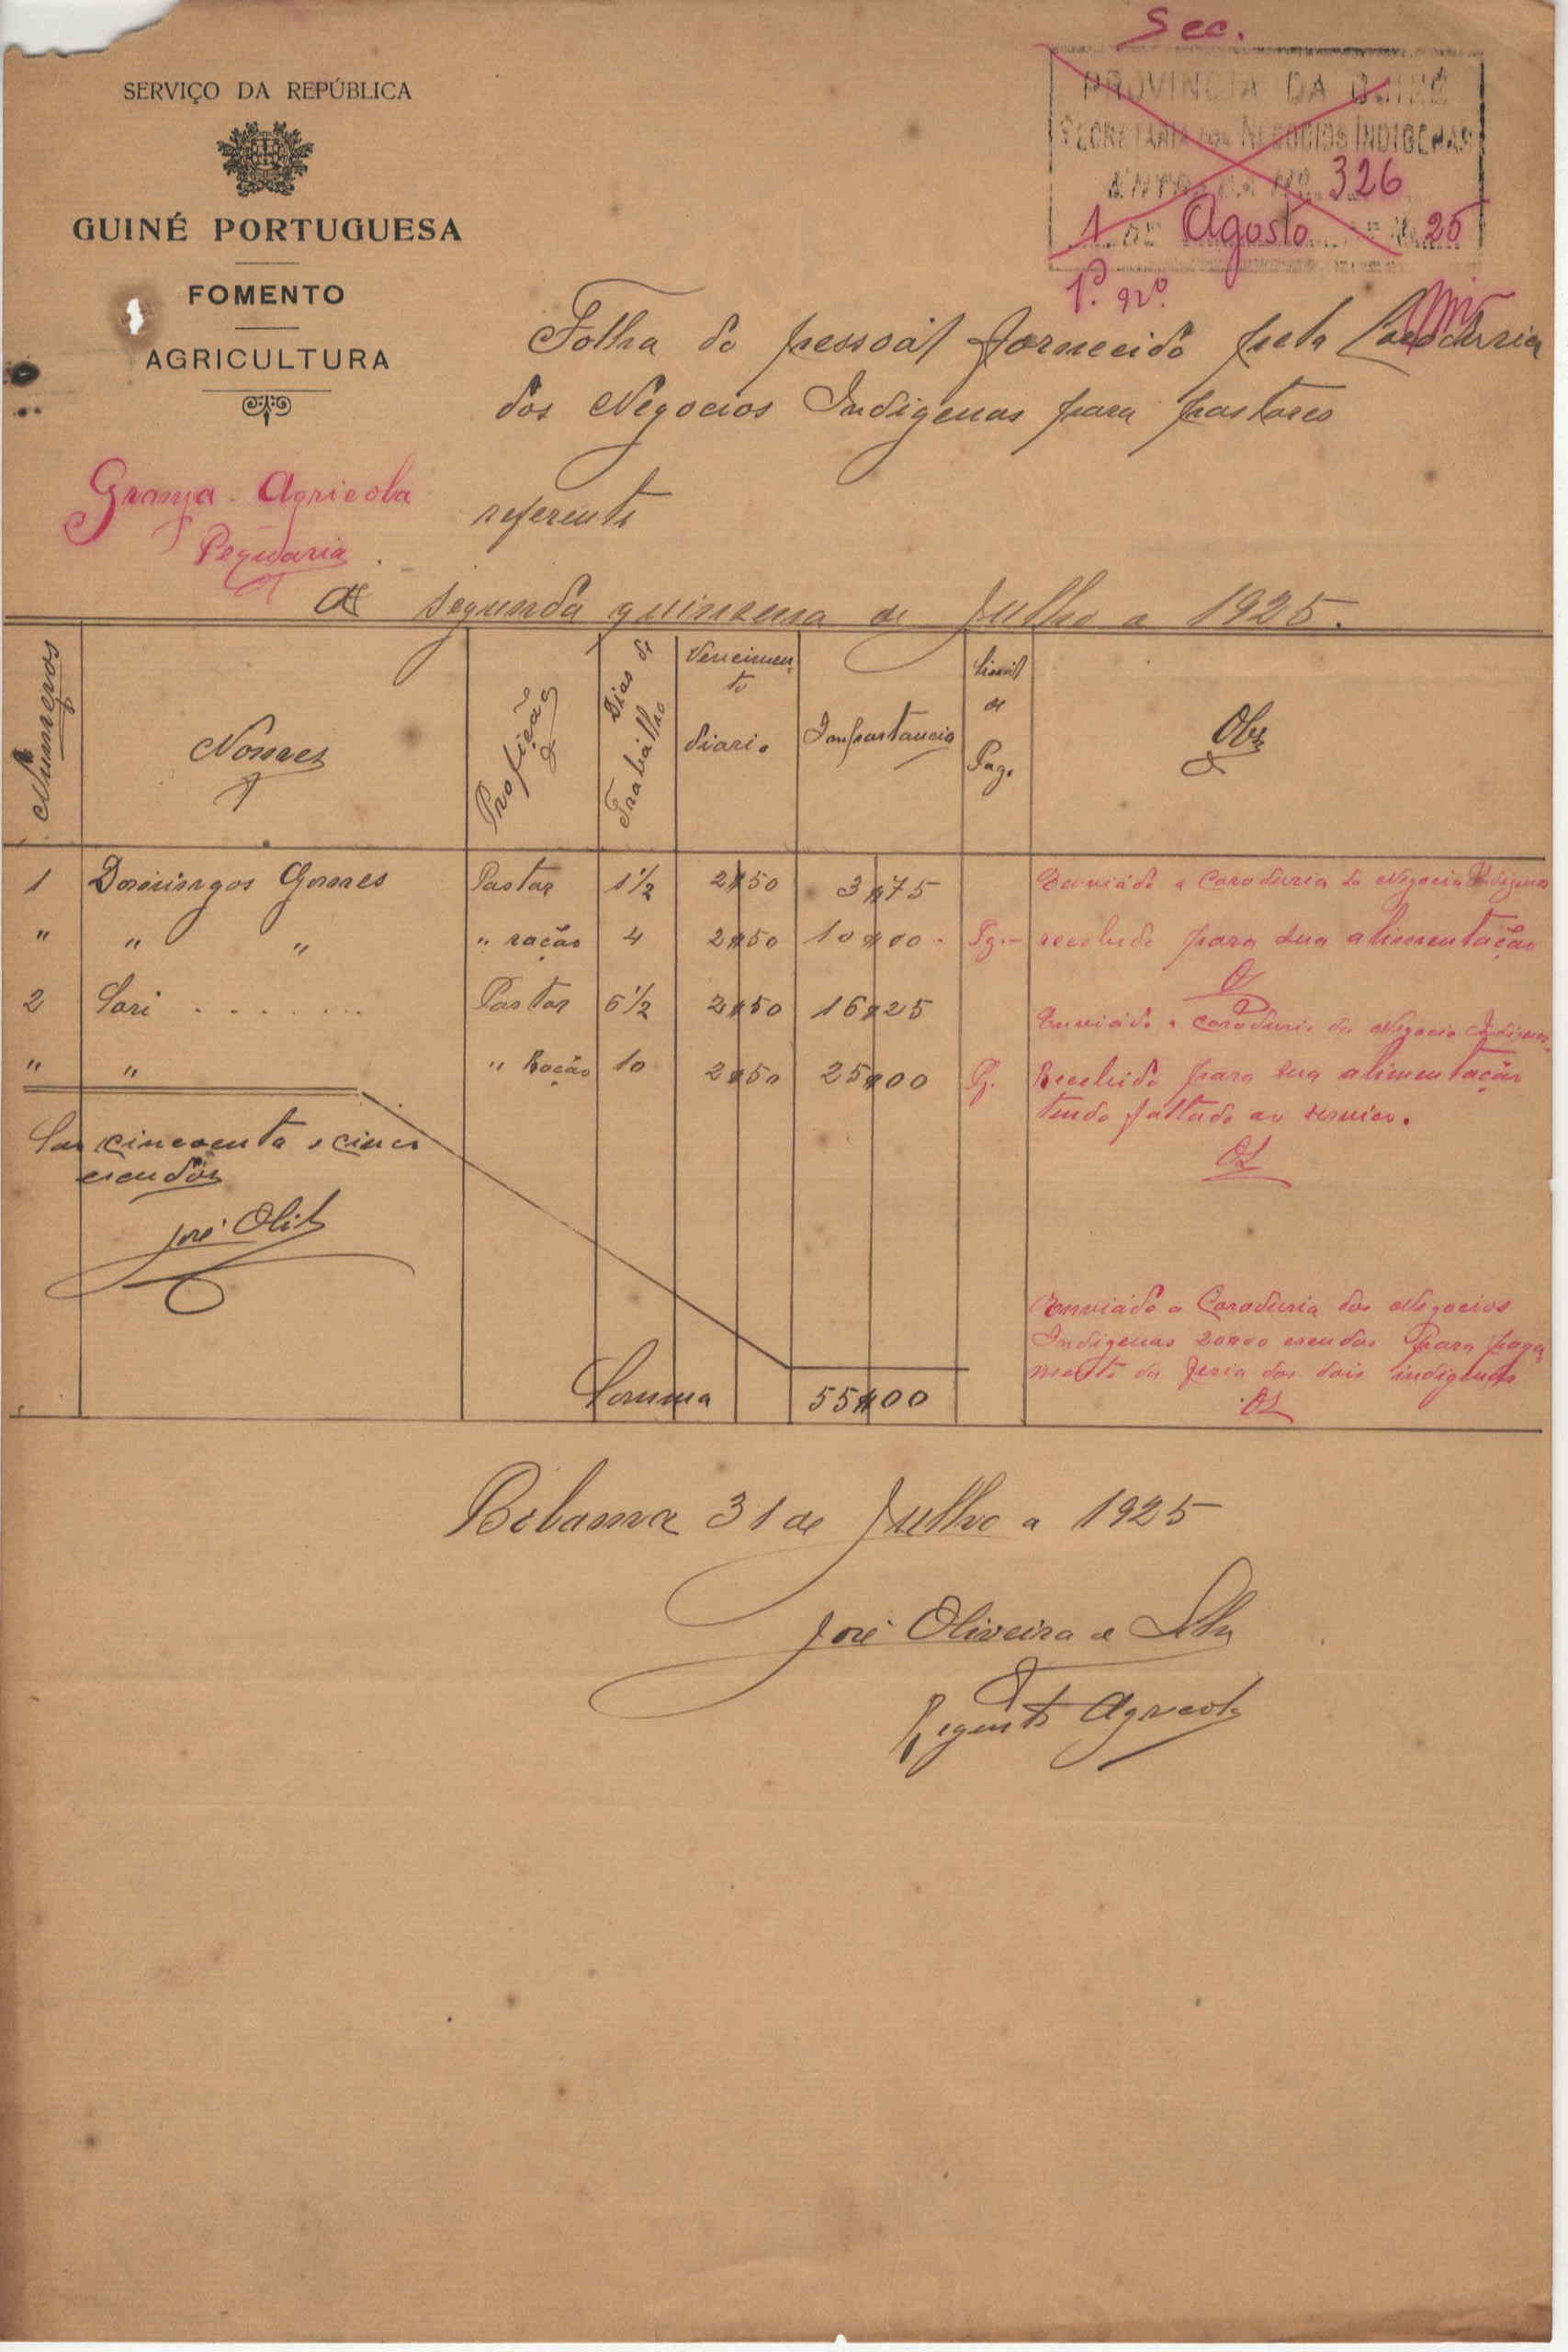 Sec.
PROVINCIA DA GUINÉ
SECRETARIA DOS NEGOCIOS INDIGENAS
ENTRADA Nº 326
1 DE Agosto DE 1925
SERVIÇO DA REPÚBLICA
GUINÉ PORTUGUESA
FOMENTO
AGRICULTURA
Granja Agricola
Pequaria
Folha do pessoal fornecido pela Coradoria
dos Negocios Indigenas para pastores
referente
segunda quinzena de Julho a 1925.
Numeros
Nomes
Profição
Dias de Trabalho
Vencimento diario
Importancia
Sinal de Pag.
Obs
1 Domingos Gomes Pastor 1 1/2 2$50 3$75 Enviádo a Coradoria de Negocios Indigenas
" " " " ração 4 2$50 10$00 Pg. recebido para sua alimentação
2 Sori . . . . . . . Pastor 6 1/2 2$50 16$25 Enviádo a Coradoria dos Negocio Indigenas
" " " Ração 10 2$50 25$00 Pg. Recebido para sua alimentação
tendo faltado ao serviço.
OL
São cincoenta e cinco
escudos
José Oliv
Enviádo a Coradoria dos Negocios
Indigenas 20$00 escudos para paga
mento da feria dos dois indigenas
OL
Somma 55$00
Bolama 31 de Julho a 1925
José Oliveira e Silva
Regente Agricola